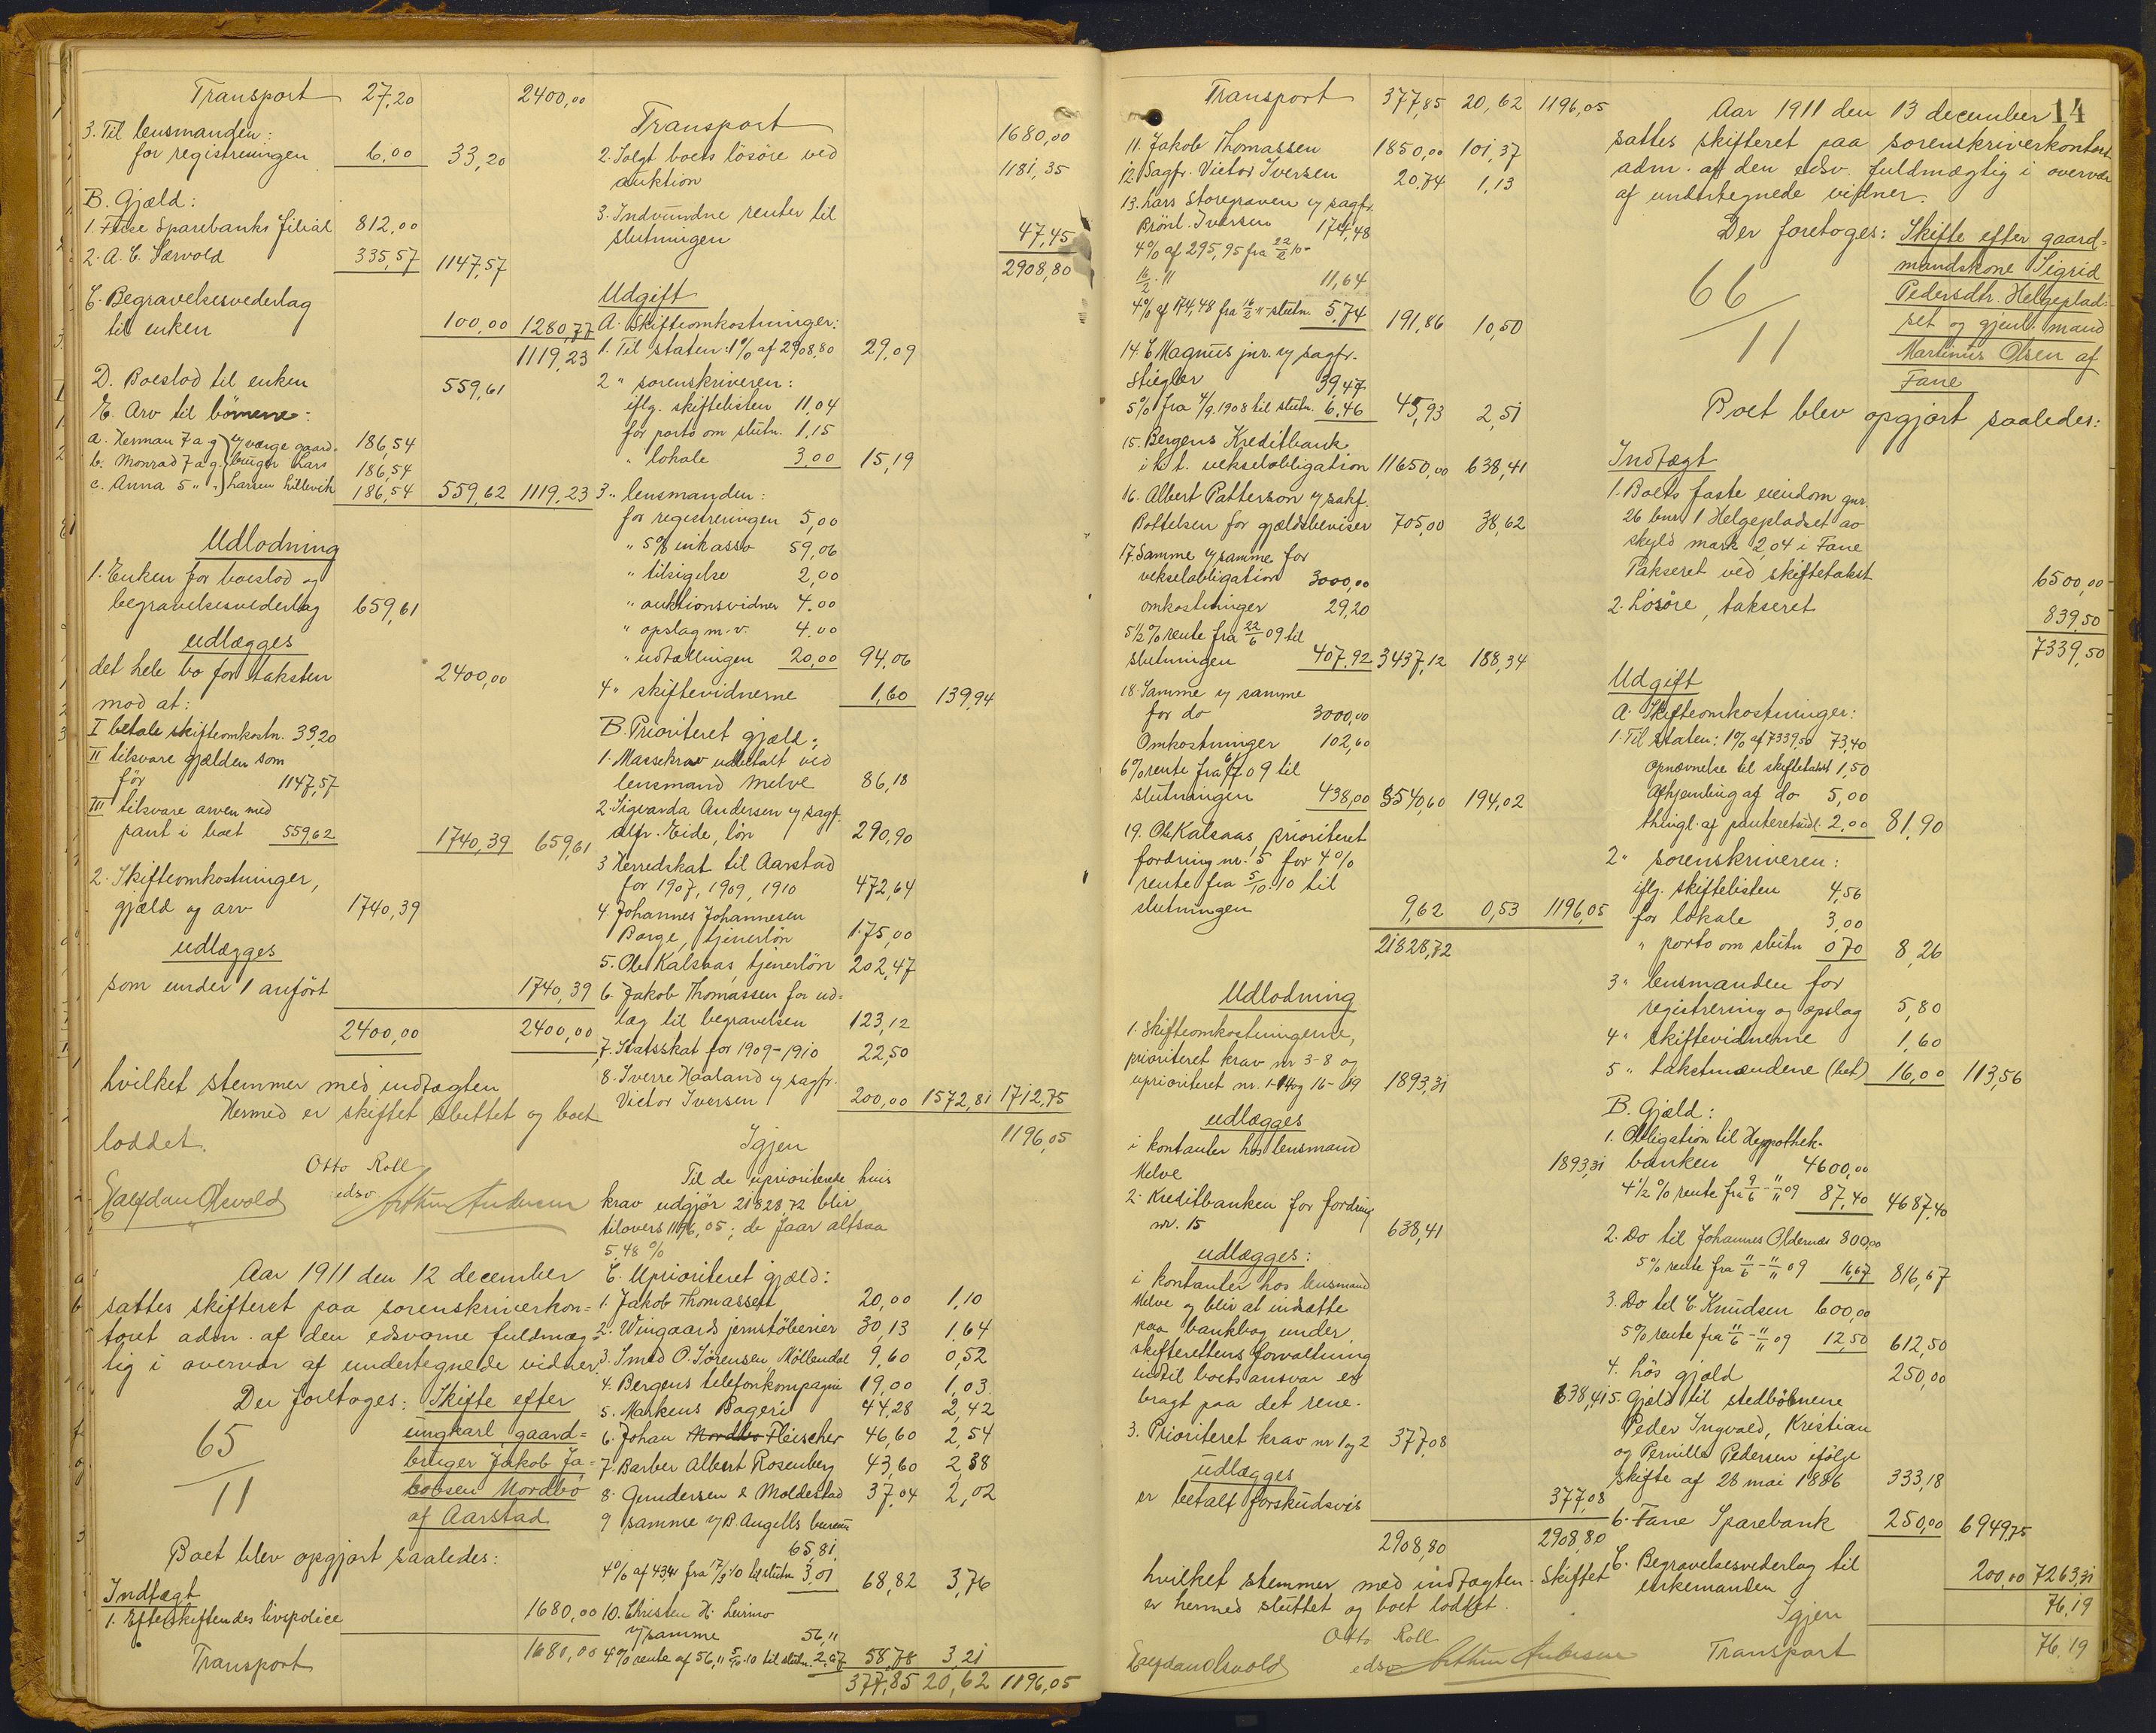 Transport 27,20 2400,00
3. Til lensmanden:
for registreringen 6,00 33,20
B. Gjæld:
1. Fane Sparebanks filial 812,00
2. A. C. Særvold 335,57 1147,57
C. Begravelsesvederlag
til enken 100,00 1280,77
1119,23
D. Boeslod til enken 559,61
E. Arv til börnene:
a. Herman 7 a g } v/ værge gaard- 186,54
b. Monrad 7 a g } bruger Lars 186,54
c. Anna 5 " " } Larsen Lillevik 186,54 559,62 1119,23
Udlodning
1. Enken for boeslod og
begravelsesvederlag 659,61
udlægges
det hele bo for taksten 2400,00
mod at:
I betale skifteomkostn. 33,20
II tilsvare gjælden som
för 1147,57
III tilsvare arven med
pant i boet 559,62 1740,39 659,61
2. Skifteomkostninger,
gjæld og arv 1740,39
udlægges
som under 1 anfört 1740,39
2400,00 2400,00
hvilket stemmer med indtægten
Hermed er skiftet sluttet og boet
loddet.
Otto Roll
edsv
Halfdan Olsvold Arthur Andersen
Aar 1911 den 12 december
sattes skifteret paa sorenskriverkon=
toret adm. af den edsvorne fuldmæg=
tig i overvær af undertegnede vidner.
Der foretoges: Skifte efter
65/11
ungkarl, gaard=
bruger Jakob Ja=
kobsen Mordbö
af Aarstad
Boet blev opgjört saaledes:
Indtægt
1. Efterskiftendes livspolice 1680,00
Transport 1680,00
Transport 1680,00
2. Solgt boets lösöre ved
auktion 1181,35
3. Indvundne renter til
slutningen 47,45
2908,80
Udgift
A. Skifteomkostninger:
1. Til staten: 1% af 2908,80 29,09
2 " sorenskriveren:
iflg. skiftelisten 11,04
for porto om slutn. 1,15
" lokale 3,00 15,19
3 " lensmanden:
for registreringen 5,00
" 5% inkasso 59,06
" tilsigelse 2,00
" auktionsvidner 4.00
" opslag m.v. 4.00
" udtællingen 20,00 94,06
4 " skiftevidnerne 1,60 139,94
B. Prioriteret gjæld:
1. Massekrav udbetalt ved
lensmand Melve 86,18
2. Sigvarda Andersen v/ sagf.
Alfr. Eide, lön 290,90
3 Herredskat til Aarstad
for 1907, 1909, 1910 472,64
4. Johannes Johannesen
Borge, tjenerlön 175,00
5. Ole Kalsaas, tjenerlön 202,47
6. Jakob Thomassen for ud=
læg til begravelsen 123,12
7. Statsskat for 1909-1910 22,50
8. Sverre Haaland v/ sagfr.
Victor Iversen 200,00 1572,81 1712,75
Igjen 1196,05
Til de uprioriterede hvis
krav udgjör 21828,72 blir
tilovers 1196,05; de faar altsaa
5,48 %
C. Uprioriteret gjæld:
1. Jakob Thomassen 20,00 1,10
2. Wingaards jernstöberier 30,13 1,64
3. Smed O. Sörensen, Möllendal 9,60 0,52
4. Bergens telefonkompagni 19,00 1,03
5. Markens Bageri 44,28 2,42
6. Johan Mordbö Fleischer 46,60 2,54
7. Barber Albert Rosenberg 43,60 2,38
8. Gundersen & Moldestad 37,04 2,02
9 samme v/ B. Angells bureau
65,81
4% af 43,41 fra 17/3 10 til slutn 3,01 68,82 3,76
10. Christen H. Leirmo
v/ samme 56,11
4% rente af 56,11 5/10 10 til slutn. 2,67 58,78 3,21
377,85 20,62 1196,05
Transport 377,85 20,62 1196,05
11. Jakob Thomassen 1850,00 101,37
12. Sagfr. Victor Iversen 20,74 1,13
13. Lars Storegraven v/ sagfr.
Brönl. Iversen 174,48
4% af 295,95 fra 22/2 10-
16/2 11 11,64
4% af 174,48 fra 16/2 11-slutn. 5,74 191,86 10,50
14. C Magnus jnr. v/ sagfr.
Stiegler 39,47
5% fra 4/9 1908 til slutn. 6,46 45,93 2,51
15. Bergens Kreditbank
i h.t. vekselobligation 11650,00 638,41
16. Albert Patterson v/ sakf.
Bottelsen for gjældsbeviser 705,00 38,62
17. Samme v/ samme for
vekselobligation 3000,00
omkostninger 29,20
5½% rente fra 22/6 09 til
slutningen 407,92 3437,12 188,34
18. Samme v/ samme
for do 3000,00
Omkostninger 102,60
6% rente fra 6/7 09 til
slutningen 438,00 3540,60 194,02
19. Ole Kalsaas, prioriteret
fordring nr. 5 for 4%
rente fra 5/10 10 til
slutningen 9,62 0,53 1196,05
21828,72
Udlodning
1. Skifteomkostningerne,
prioriteret krav nr 3-8 og
uprioriteret nr. 1-14 og 16-19 1893,31
udlægges
i kontanter hos lensmand
Melve 1893,31
2. Kreditbanken for fordring
nr. 15 638,41
udlægges:
i kontanter hos lensmand
Melve og blir at indsætte
paa bankbog under
skifterettens forvaltning
indtil boets ansvar er
bragt paa det rene. 638,41
3. Prioriteret krav nr 1 og 2 377,08
udlægges
er betalt forskudsvis 377,08
2908,80 2908,80
hvilket stemmer med indtægten. Skiftet
er hermed sluttet og boet loddet.
Otto Roll
Halfdan Olsvold edsv Arthur Andersen
14
Aar 1911 den 13 december
sattes skifteret paa sorenskriverkontoret
adm. af den edsv. fuldmægtig i overvær
af undertegnede vidner.
Der foretoges: Skifte efter gaard=
66/11
mandskone Sigrid
Pedersdtr. Helgeplad=
set og gjenl. mand
Martinus Olsen af
Fane
Boet blev opgjört saaledes:
Indtægt
1. Boets faste eiendom gnr.
26 bnr. 1 Helgepladset av
skyld mark 2,04 i Fane
Takseret ved skiftetakst 6500,00
2. Lösöre, takseret 839,50
7339,50
Udgift
A. Skifteomkostninger:
1. Til staten: 1% af 7339,50 73,40
Opnævnelse til skiftetakst 1,50
Afhjemling af do 5,00
thingl. af panteretsudl. 2,00 81,90
2 " sorenskriveren:
iflg. skiftelisten 4,56
for lokale 3,00
" porto om slutn 0,70 8,26
3 " lensmanden for
registrering og opslag 5,80
4 " skiftevidnerne 1,60
5 " takstmændene (bet) 16,00 113,56
B. Gjæld:
1. Obligation til Hypothek-
banken 4600,00
4½ % rente fra 9/6 - 11/11 09 87,40 4687,40
2. Do til Johannes Oldernæs 800,00
5% rente fra 11/6 - 11/11 09 16,67 816,67
3. Do til C. Knudsen 600,00
5% rente fra 11/6 - 11/11 09 12,50 612,50
4. Lös gjæld 250,00
5. Gjæld til stedbörnene
Peder Ingvald, Kristian
og Pernille Pedersen ifölge
skifte af 28 mai 1886 333,18
6. Fane Sparebank 250,00 6949,75
C. Begravelsesvederlag til
enkemanden 200,00 7263,31
Igjen 76,19
Transport 76,19